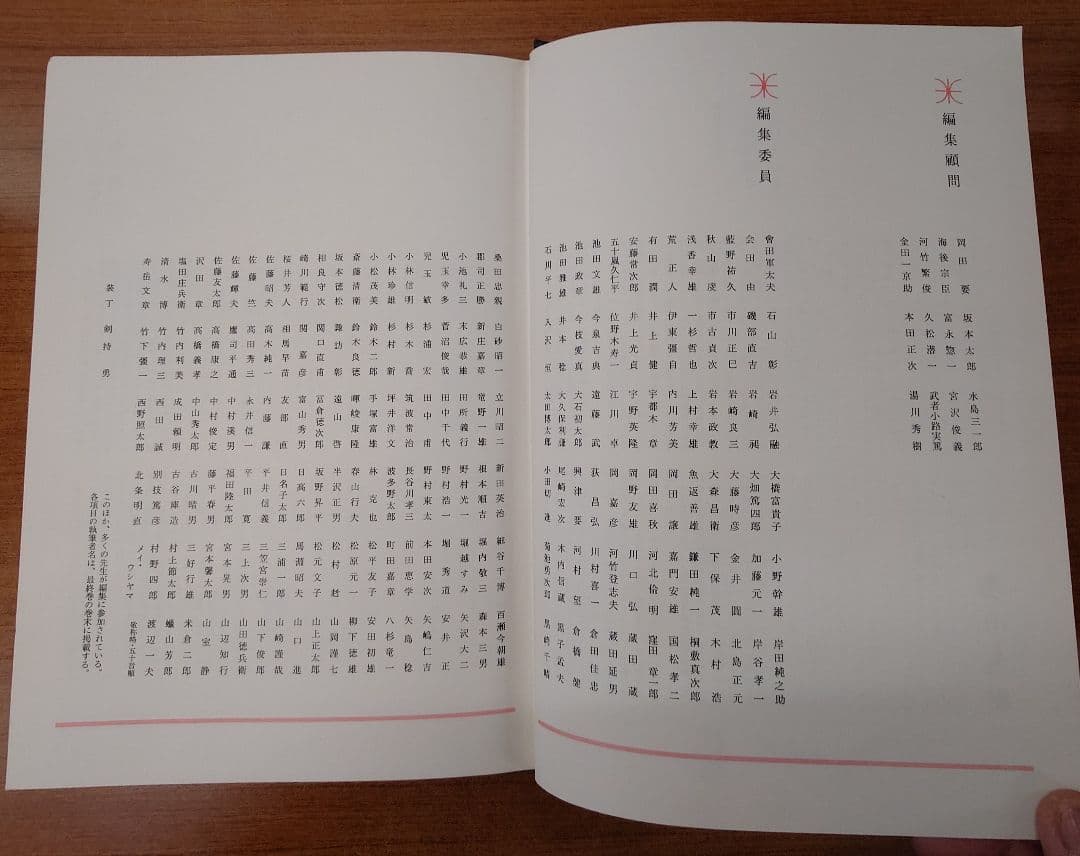 編集顧問
岡田要 坂本太郎 水島三一郎
海後宗臣 富永惣一 宮沢俊義
河竹繁俊 久松潜一 武者小路実篤
金田一京助 本田正次 湯川秀樹
編集委員
會田軍太夫 石山彰 岩井弘融 大橋富貴子 小野幹雄 岸田純之助
会田由 磯部直吉 岩崎昶 大畑篤四郎 加藤元一 岸谷孝一
藍野祐久 市川正巳 岩崎良三 大藤時彦 金井圓 北島正元
秋山虔 市古貞次 岩本政教 大森昌衛 下保茂 木村浩
浅香幸雄 一杉哲也 上村幸雄 魚返善雄 鎌田純一 桐敷真次郎
荒正人 伊東彊自 内川芳美 岡田譲 嘉門安雄 国松孝二
有田潤 井上健 宇都木章 岡田喜秋 河北倫明 窪田章一郎
安藤常次郎 井上光貞 宇野英隆 岡野友雄 川口弘 蔵田蔵
五十嵐久仁平 位野木寿一 江川卓 岡嘉彦 河竹登志夫 蔵田延男
池田文雄 今泉吉典 遠藤武 荻昌弘 川村喜一 倉田佳忠
池田政章 今枝愛真 大石初太郎 興津要 河村望 倉橋健
池田雅雄 井本稔 大久保利謙 尾崎宏次 木内信蔵 黒子孟夫
石川平七 入沢恒 太田博太郎 小田切進 菊池勇次郎 黒崎千晴
桑田忠親 白砂昭一 立川昭二 新田英治 細谷千博 百瀬今朝雄
郡司正勝 新庄嘉章 竜野一雄 根本順吉 堀内敬三 森本三男
小池礼三 末広恭雄 田所義行 野村光一 堀越すみ 矢沢大二
児玉幸多 菅沼俊哉 田中千代 野村浩一 堀秀道 安井正
児玉敏 杉浦宏 田中甫 野村東太 本田安次 矢嶋仁吉
小林信明 杉木喬 筑波常治 長谷川孝三 前田恵学 矢島稔
小林珍雄 杉村新 坪井洋文 波多野太郎 町田嘉章 八杉竜一
小松茂美 鈴木二郎 手塚富雄 林克也 松平友子 安田初雄
斎藤清衛 鈴木良徳 暉峻康隆 春山行夫 松原元一 柳下徳雄
坂本徳松 諏訪彰 遠山啓 半沢正男 松村赳 山岡謹七
相良守次 関口直甫 冨倉徳次郎 坂野昇平 松元文子 山上正太郎
崎川範行 関嘉彦 富山秀男 日高六郎 馬淵昭夫 山口進
桜井芳人 相馬早苗 友部直 日名子太郎 三浦一郎 山崎謹哉
佐藤昭夫 高木純一 内藤謙 平井信義 三笠宮崇仁 山下俊郎
佐藤竺 高田秀三 永井信一 平田寛 三上次男 山田徳兵衛
佐藤輝夫 鷹司平通 中村溪男 福田陸太郎 宮本晃男 山辺知行
佐藤友太郎 高橋康之 中村俊定 藤平春男 宮本馨太郎 山室静
沢田章 高橋義孝 中山秀太郎 古川晴男 三好行雄 米倉二郎
塩田庄兵衛 竹内利美 成田頼明 古谷庫造 村上節太郎 蠟山芳郎
清水博 竹内理三 西田誠 別技篤彦 村野四郎 渡辺一夫
寿岳文章 竹下彊一 西野照太郎 北条明直 メイ・ウシヤマ 敬称略・五十音順
装丁 剣持勇
このほか、多くの先生が編集に参加されている。
各項目の執筆者名は、最終巻の巻末に掲載する。